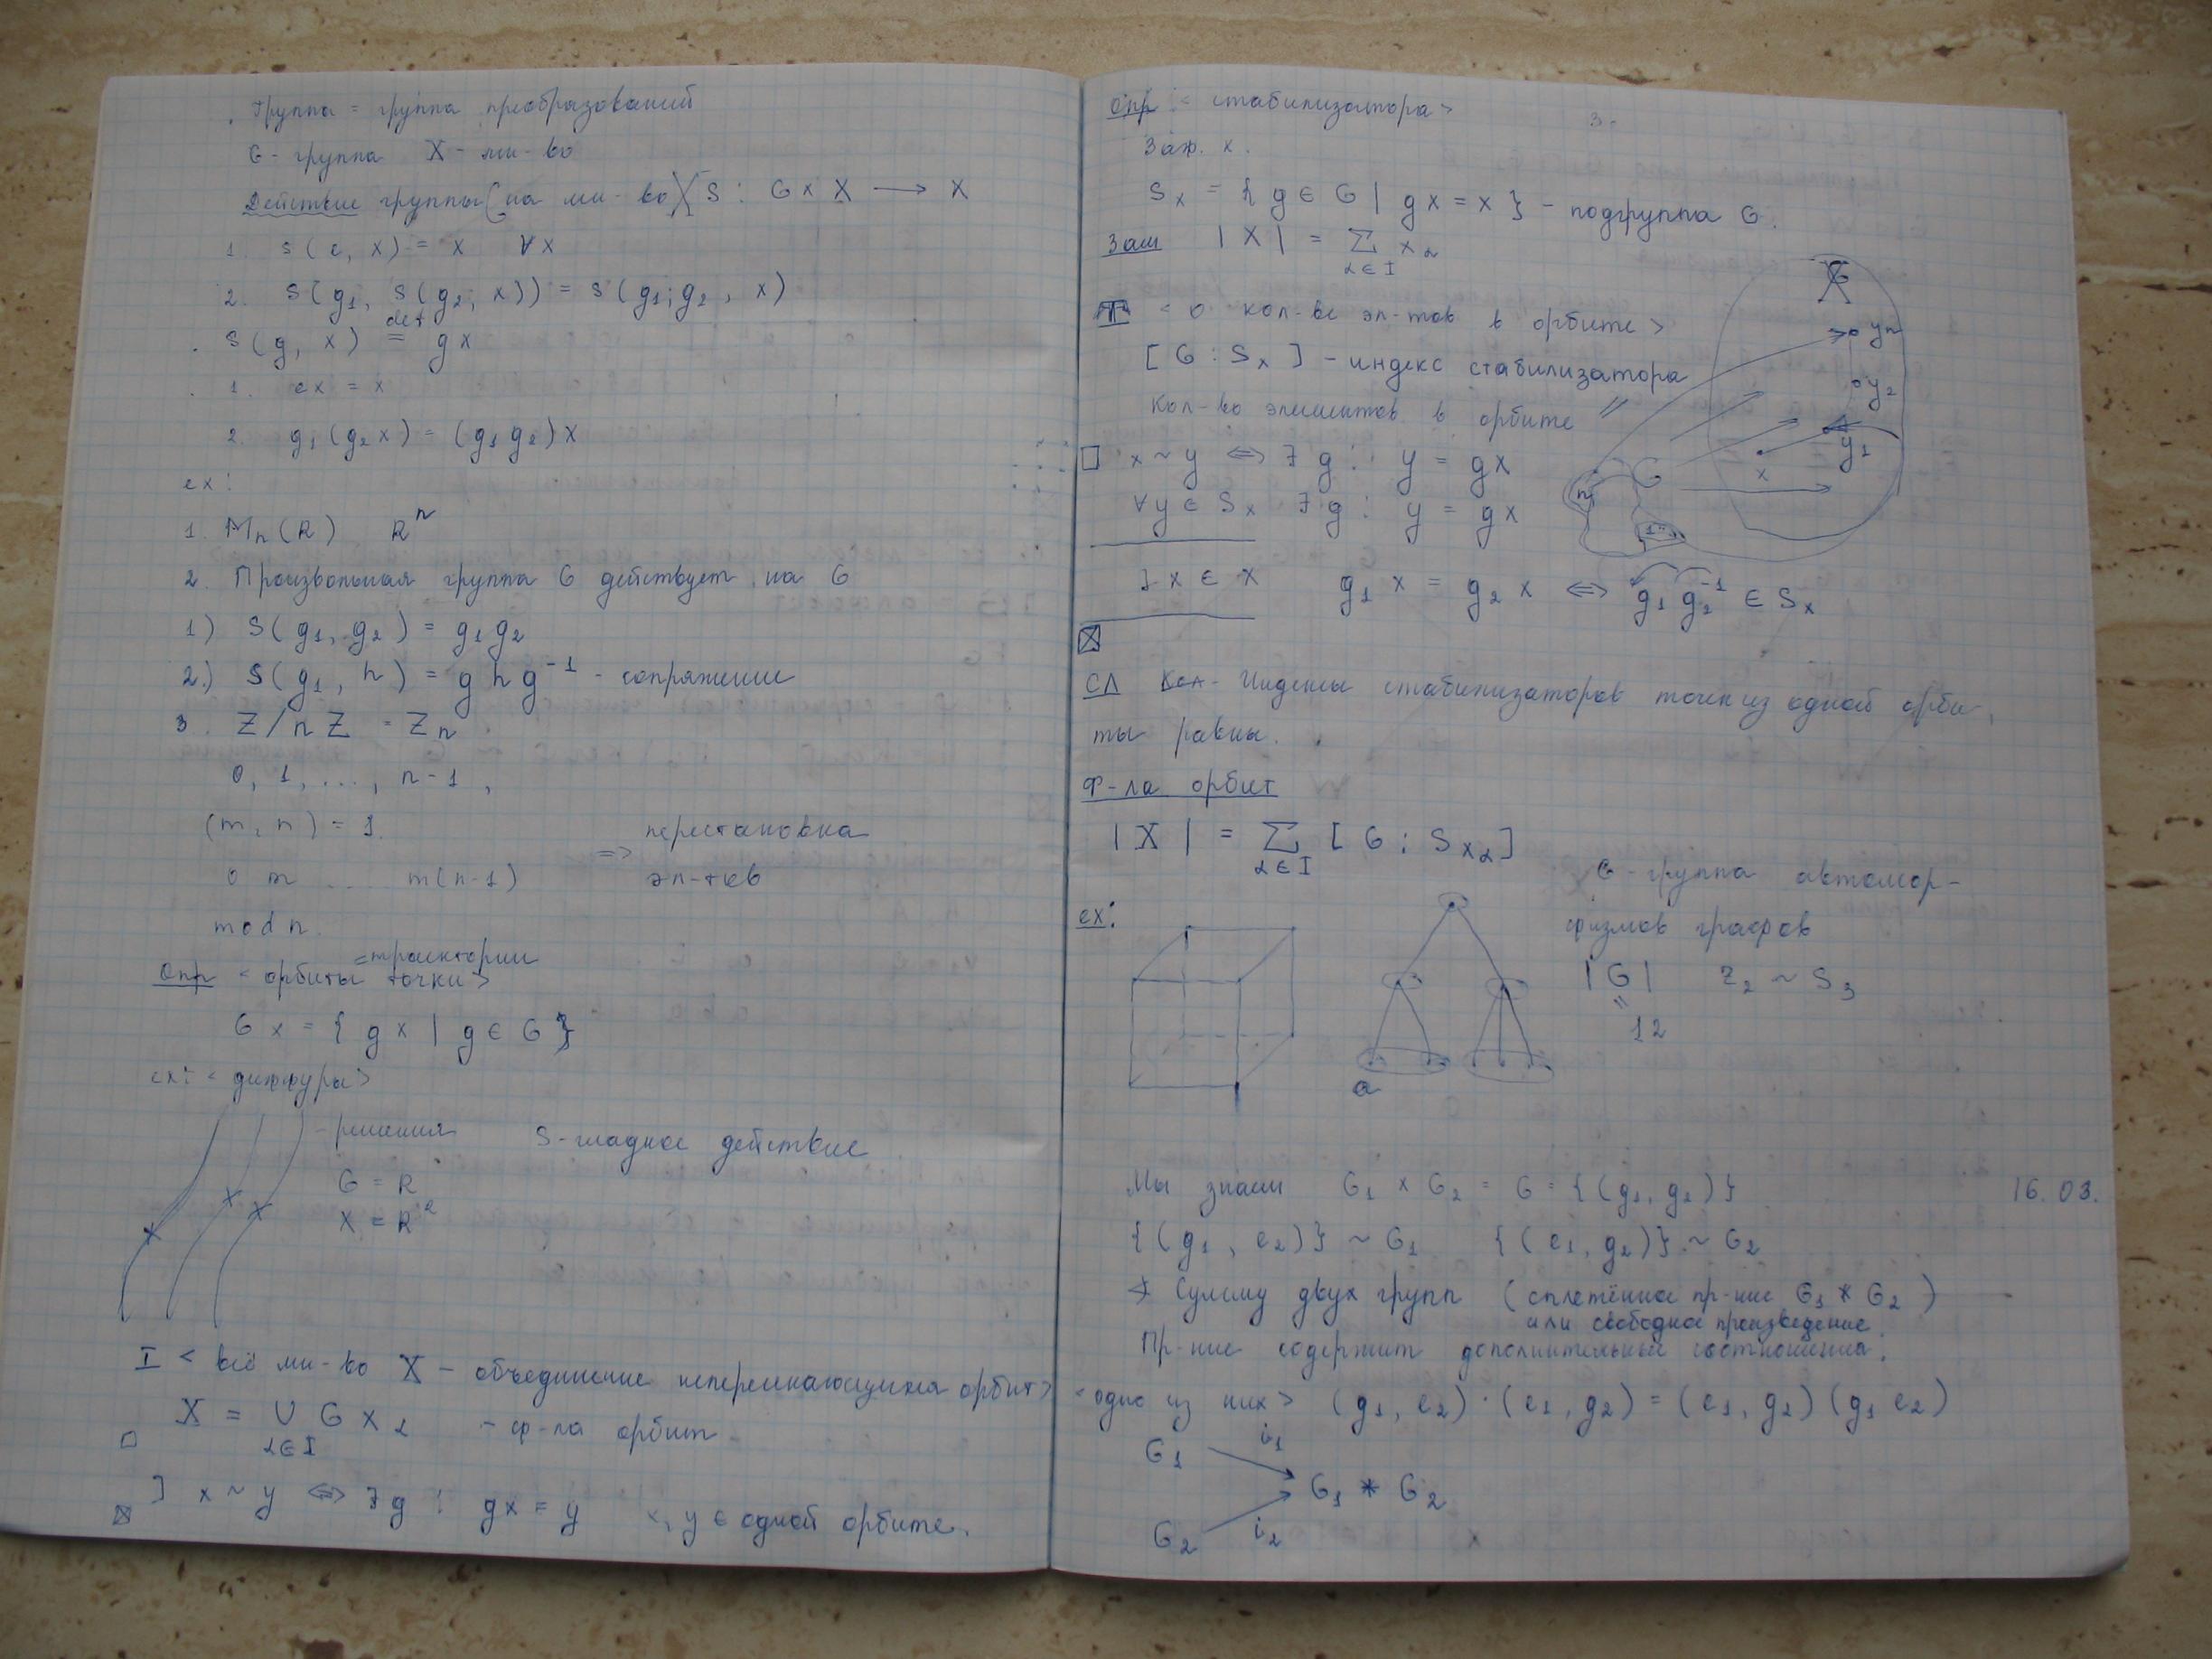 Группа = группа преобразований
G - группа X - мн-во
Действие группы (на мн-во X) S : G × X ⟶ X
1. s(e, x) = x ∀x
2. s(g₁, s(g₂, x)) = s(g₁;g₂, x)
def
s(g, x) = gx
1. ex = x
2. g₁(g₂x) = (g₁g₂)x
ex:
1. Mₙ(R) Rⁿ
2. Произвольная группа G действует на G
1) S(g₁, g₂) = g₁g₂
2.) S(g₁, h) = ghg⁻¹ - сопряжение
3. Z/nZ = Zₙ
0, 1, ..., n-1,
(m, n) = 1.
⇒ перестановка
0 m ... m(n-1) эл-тов
mod n.
=траектории
Опр < орбиты точки>
Gx = {gx | g ∈ G}
ex: < диффуры>
- решения S - гладкое действие
G = R
X = R²
I < всё мн-во X - объединение непересекающихся орбит>
X = ∪ G x_α - ф-ла орбит
α∈I
] x ~ y ⇔ ∃g : gx = y x, y ∈ одной орбите.
Опр < стабилизатора>
Заф. x.
Sₓ = {g ∈ G | gx = x} - подгруппа G.
Зам |X| = Σ x_α
α∈I
Т < о кол-ве эл-тов в орбите>
[G : Sₓ] - индекс стабилизатора
Кол-во элементов в орбите //
X
yₙ
y₂
y₁
x
G
n
1
x ~ y ⇔ ∃g : y = gx
∀y ∈ Sₓ ∃g : y = gx
] x ∈ X g₁x = g₂x ⇔ g₁g₂⁻¹ ∈ Sₓ
СЛ Индексы стабилизаторов точек из одной орби-
ты равны.
Ф-ла орбит
|X| = Σ [G : S_{x_α}]
α∈I
G - группа автомор-
физмов графов
ex:
|G| Z₂ ~ S₃
"
12
a
16.03.
Мы знаем G₁ × G₂ = G = {(g₁, g₂)}
{(g₁, e₂)} ~ G₁ {(e₁, g₂)} ~ G₂
Сумму двух групп (сплетённое пр-ние G₁ * G₂)
или свободное произведение.
Пр-ние содержит дополнительные соотношения.
<одно из них> (g₁, e₂) · (e₁, g₂) = (e₁, g₂)(g₁ e₂)
G₁ i₁
G₁ * G₂
G₂ i₂